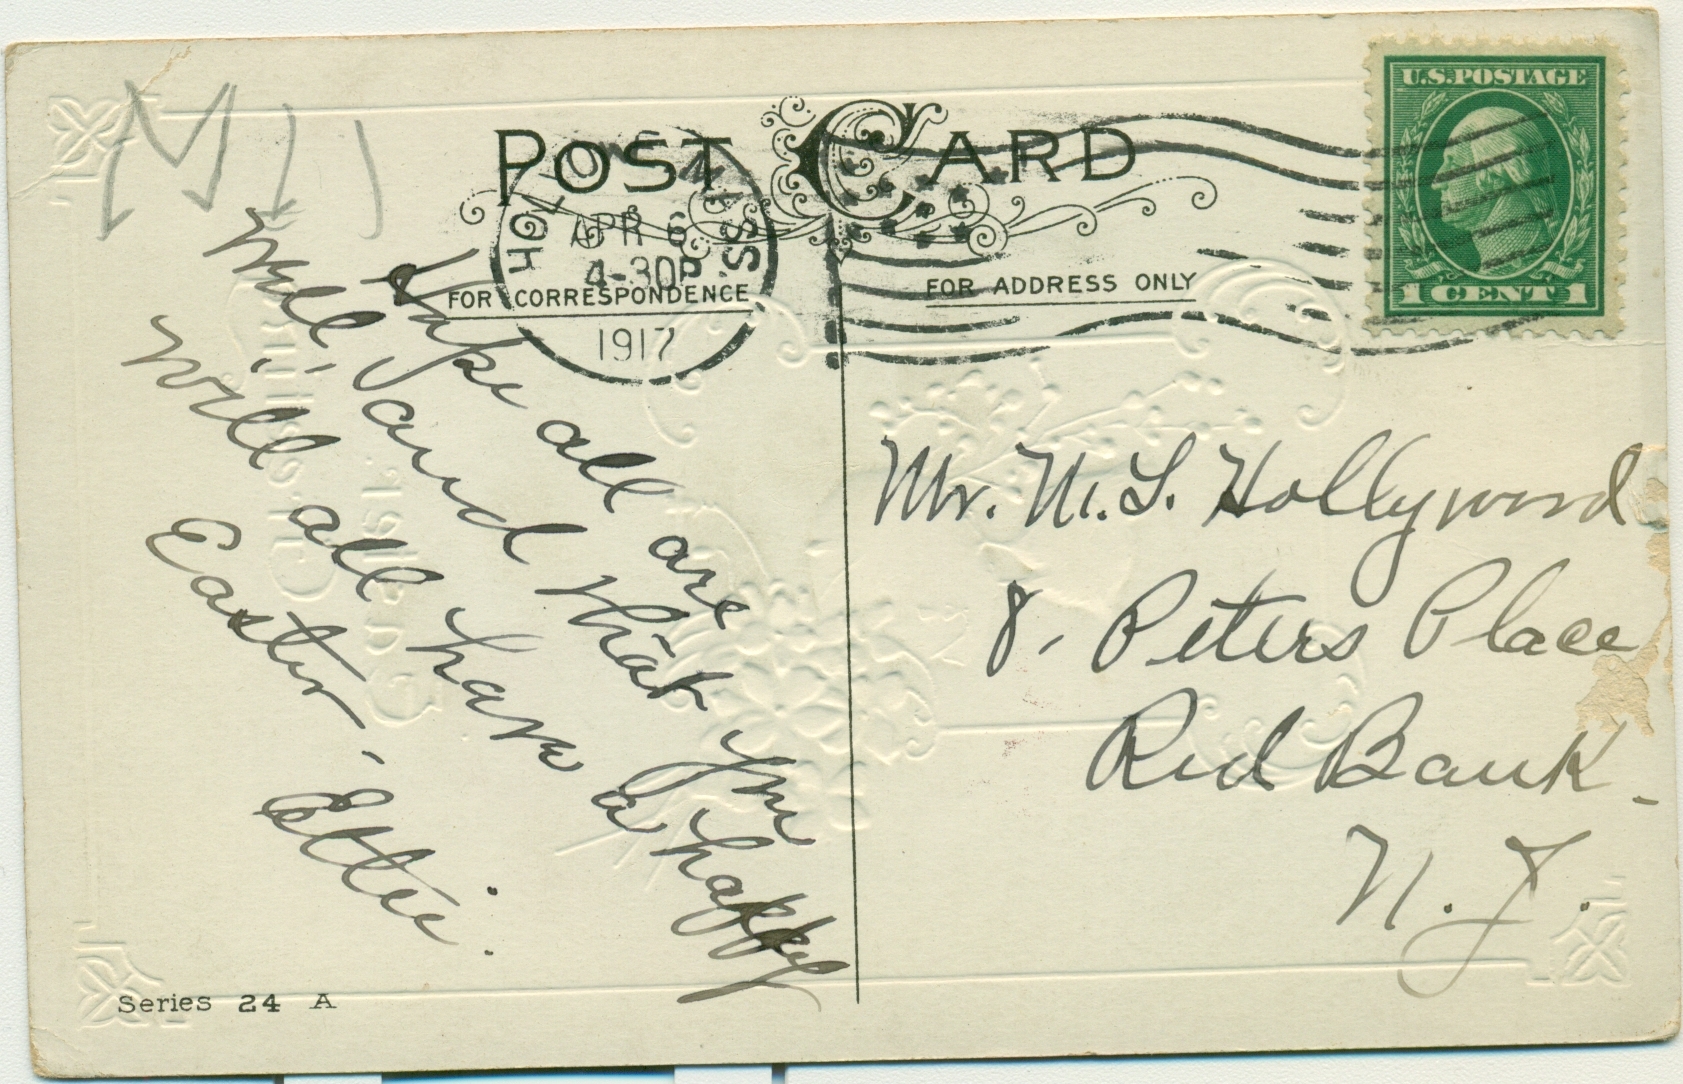 POST CARD
U.S. POSTAGE
1 CENT 1
HOLYOKE MASS.
APR 6
4-30P
1917
FOR CORRESPONDENCE
FOR ADDRESS ONLY
Hope all are
well, and that you
will all have a happy
Easter.
Ettie.
Mr. M. L. Hollywood
8, Peters Place
Red Bank.
N. J.
Series 24 A